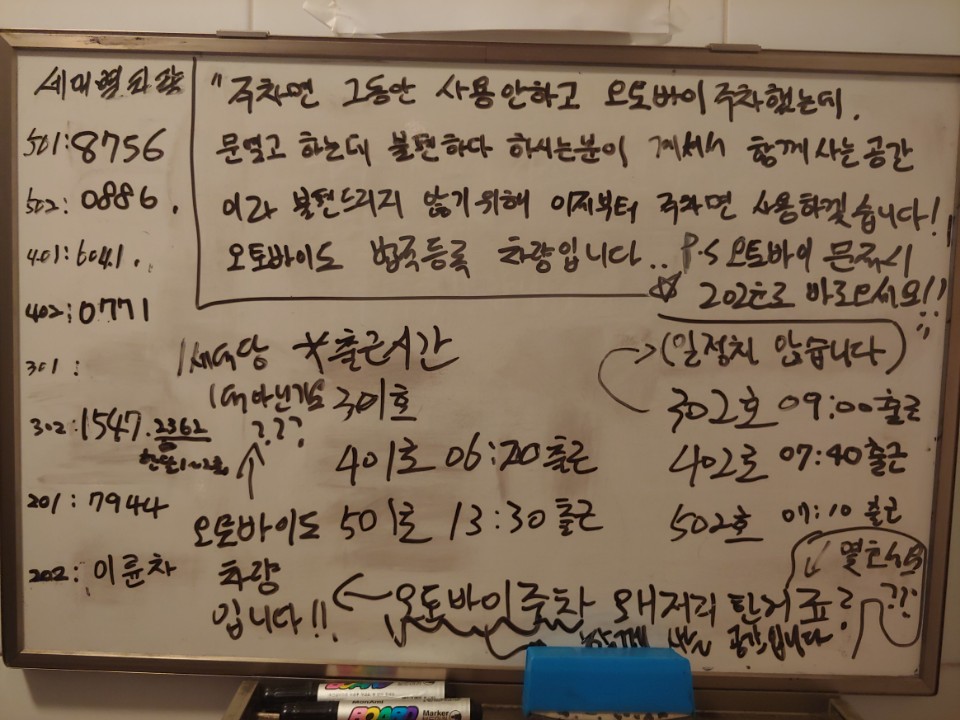 세대별차량
501:8756
502:0886.
401:6041.
402:0771
301:
302:1547.2362
201:7944
202:이륜차
"주차면 그동안 사용안하고 오토바이 주차했는데.
문열고 하는데 불편하다 하시는분이 계셔서 함께사는공간
이라 불편드리지 않기위해 이제부터 주차면 사용하겠습니다!"
오토바이도 법적등록 차량입니다.. P.S 오토바이 문제시
202호로 바로오세요!!
1세대당 *출근시간
1대아닌가요
???
301호
401호 06:20출근
501호 13:30출근
(일정치 않습니다)
302호 09:00출근
402호 07:40출근
502호 07:10 출근
오토바이도
차량
입니다!!
오토바이주차 왜저리 한거죠?
몇호
??
함께 사는 공간입니다
BOARD
Marker
BOARD
Marker